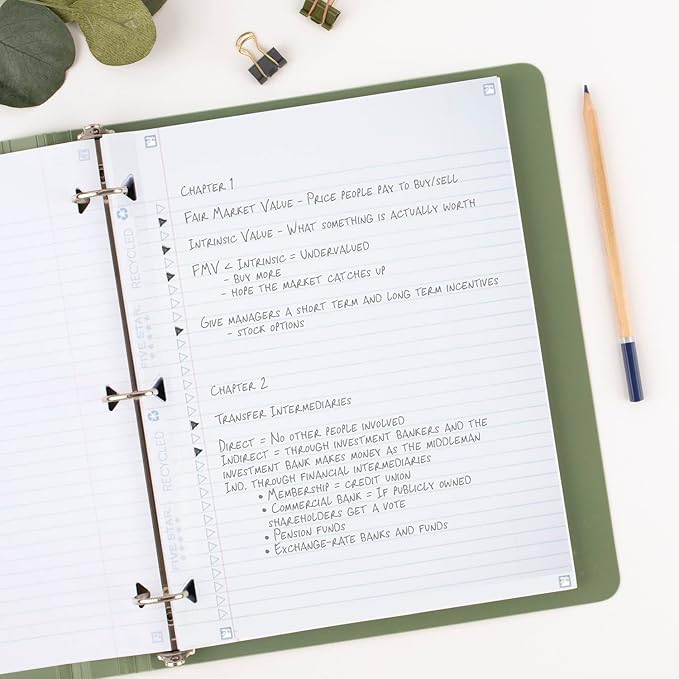 Chapter 1
Fair Market Value - Price people pay to buy/sell
Intrinsic Value - What something is actually worth
FMV < Intrinsic = Undervalued
- buy more
- hope the market catches up
Give managers a short term and long term incentives
- stock options
Chapter 2
Transfer Intermediaries
Direct = No other people involved
Indirect = through investment bankers and the
investment bank makes money as the middleman
Ind. through financial intermediaries
• Membership = credit union
• Commercial bank = If publicly owned
shareholders get a vote
• Pension funds
• Exchange-rate banks and funds
FIVE STAR RECYCLED
FIVE STAR RECYCLED